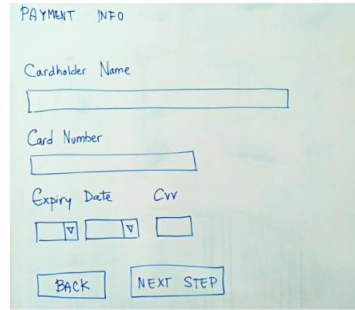 PAYMENT INFO
Cardholder Name
Card Number
Expiry Date Cvv
BACK NEXT STEP